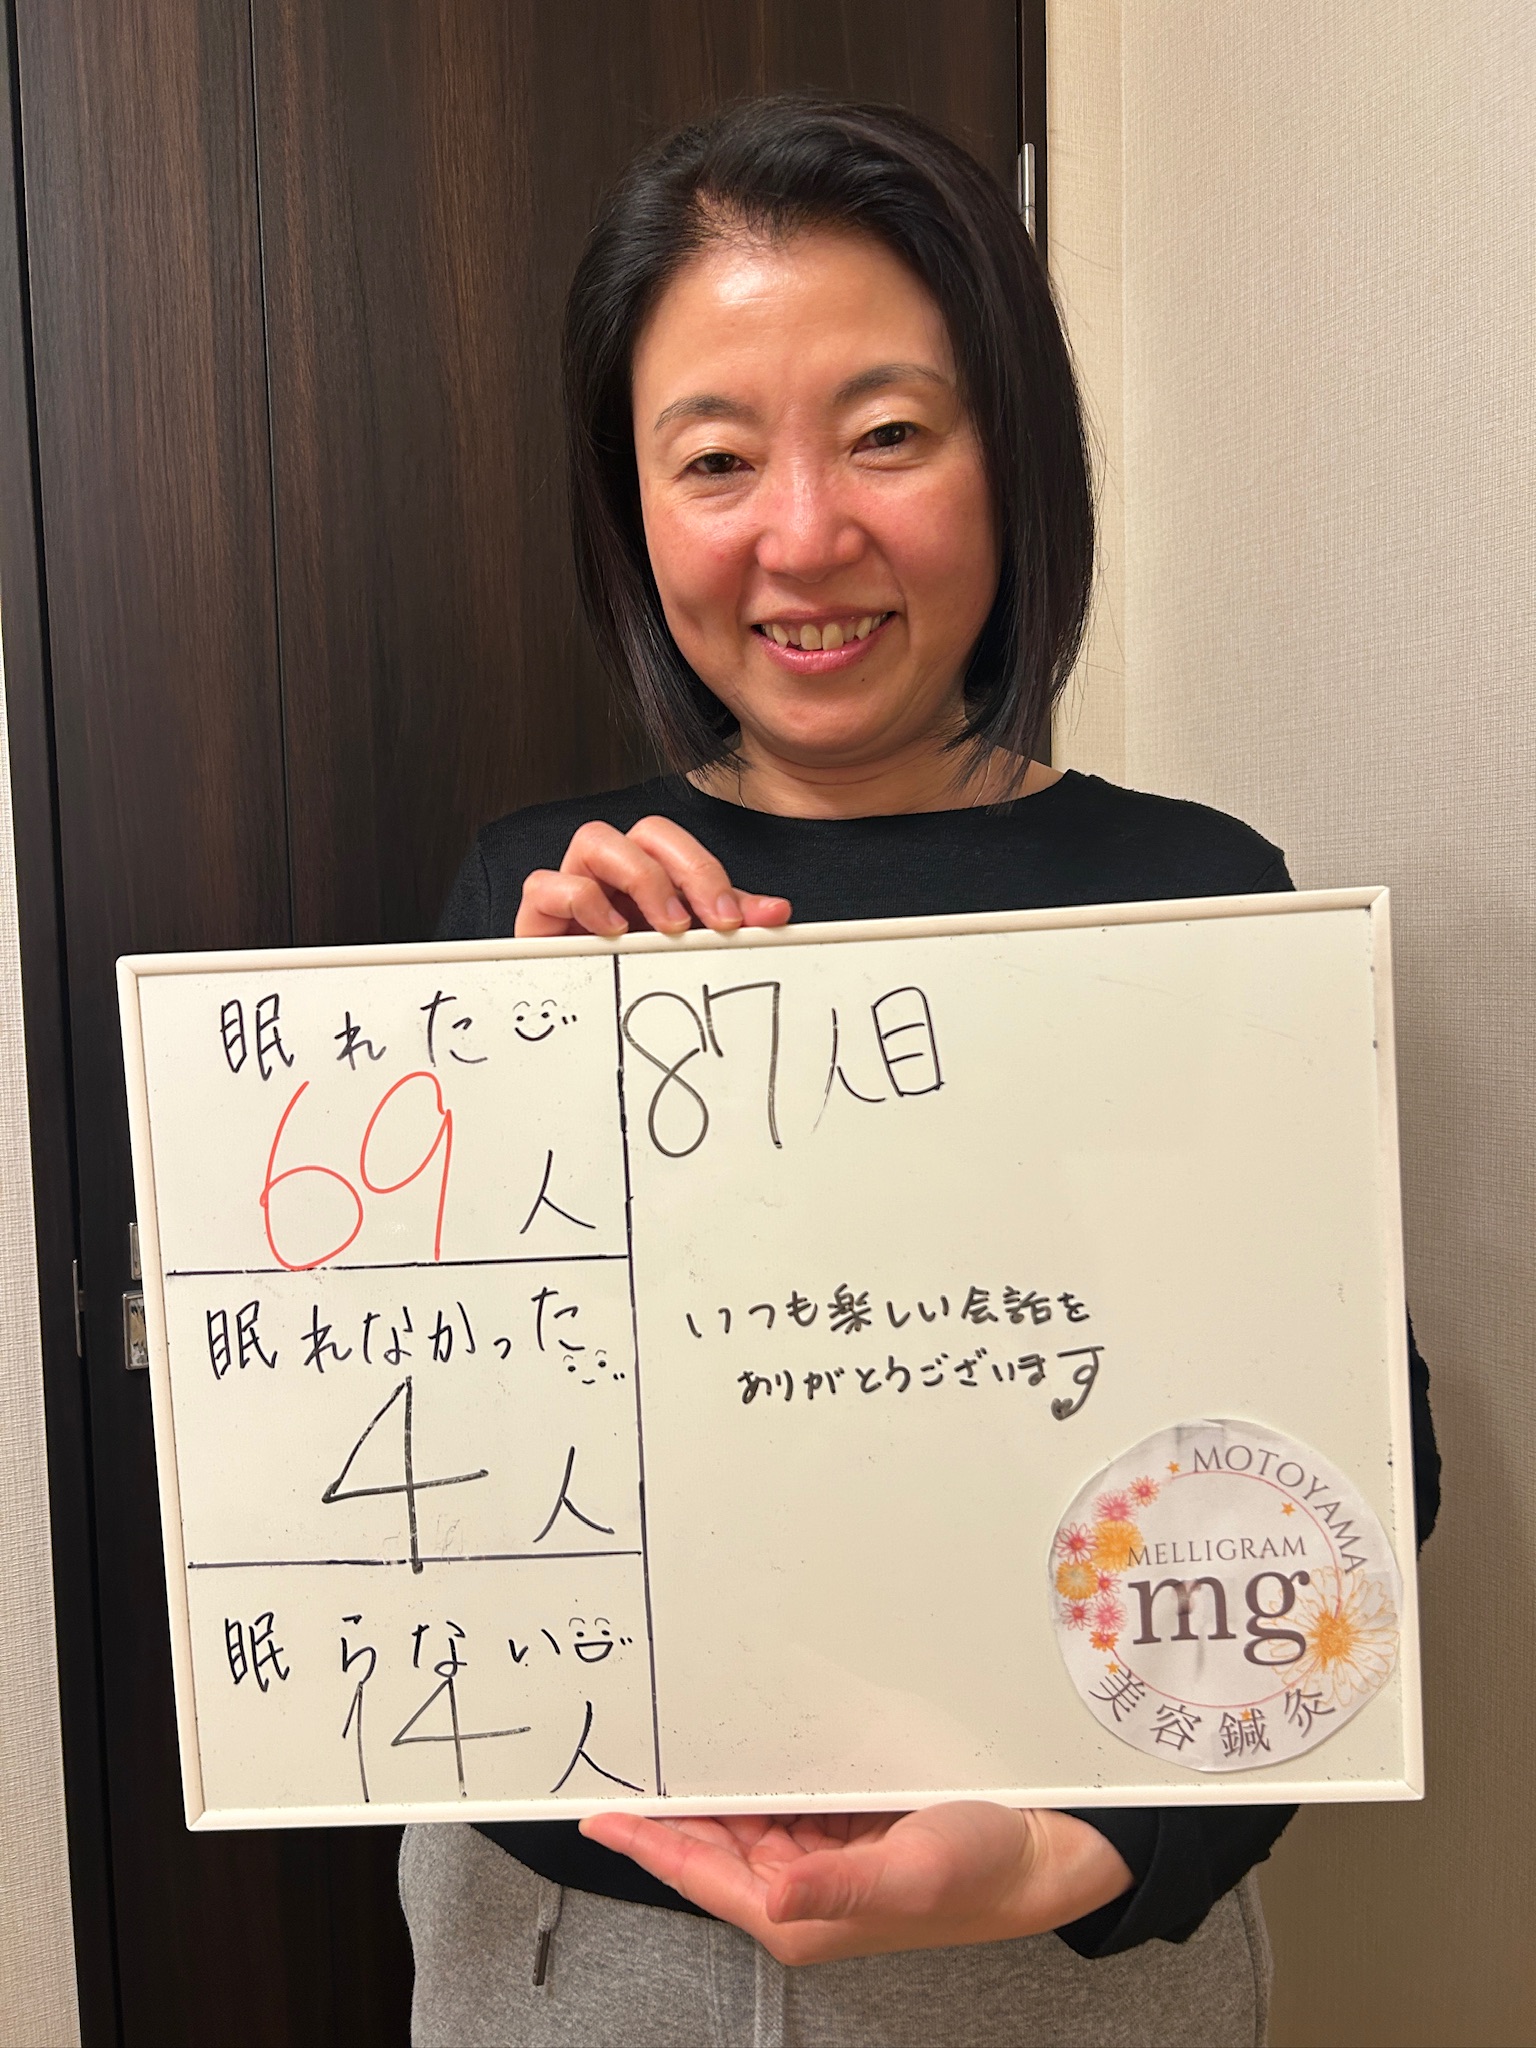 眠れた
69人
眠れなかった
4人
眠らない
14人
87人目
いつも楽しい会話を
ありがとうございます
MOTOYAMA
MELLIGRAM
mg
美容鍼灸